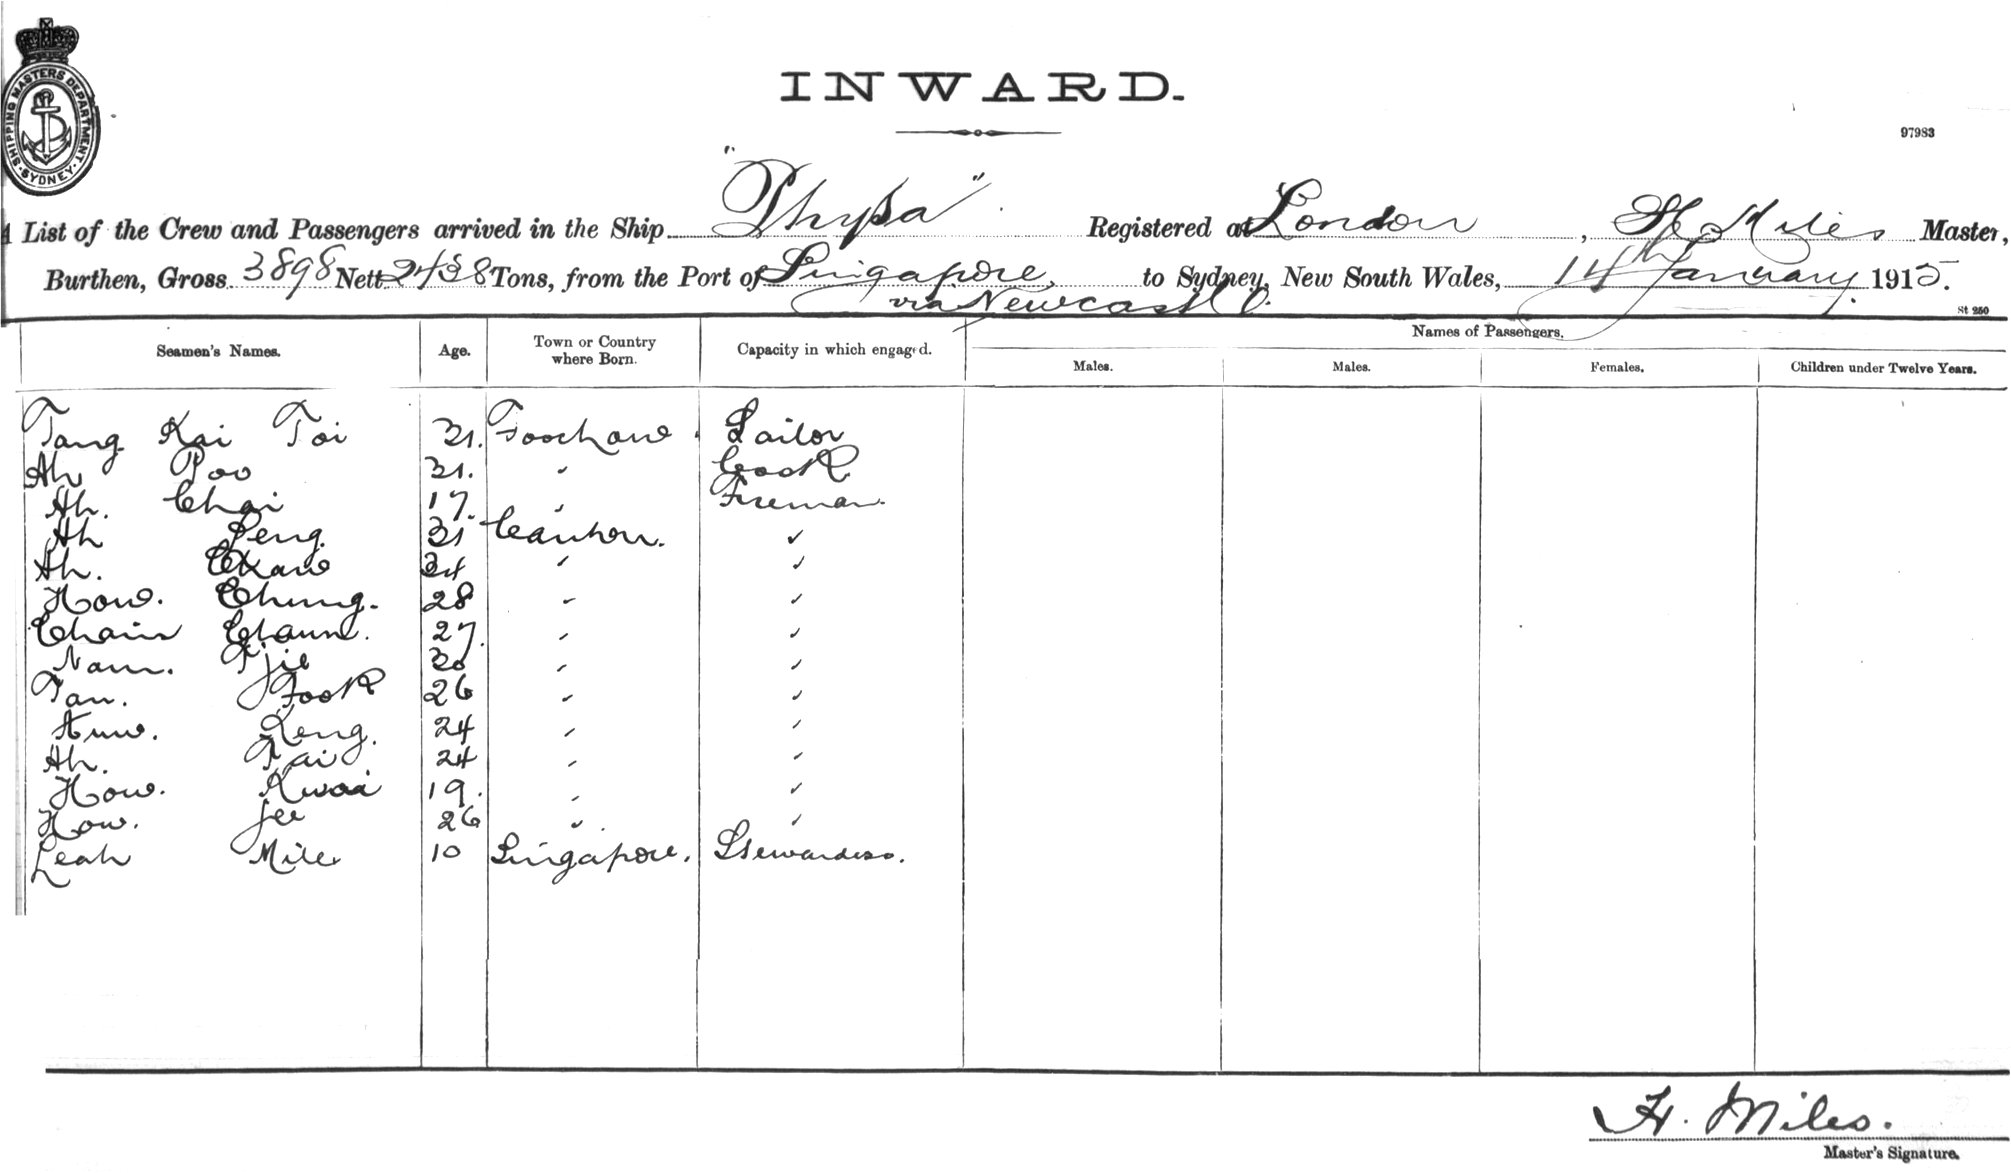 SHIPPING MASTERS DEPARTMENT. SYDNEY
INWARD.
97983
A List of the Crew and Passengers arrived in the Ship "Physa" Registered at London, H. Miles Master,
Burthen, Gross 3898 Nett 2438 Tons, from the Port of Singapore, to Sydney, New South Wales, 14th January 1915.
via Newcastle.
St 250
Seamen's Names. Age. Town or Country where Born. Capacity in which engaged. Names of Passengers.
Males. Males. Females. Children under Twelve Years.
Tang Kai Toi 31. Foochow Sailor
Ah Poo 31. " Cook
Ah. Chai 17. " Fireman.
Ah Peng 31 Canton. "
Ah. Chaw 34 " "
How. Chung. 28 " "
Chain Chaun. 27. " "
Nam. Tjie 30 " "
Tan. Fook 26 " "
Keng. 24 " "
Ah. Tai 24 " "
How. Kwai 19. " "
How. Jee 26 " "
Leah Miles 10 Singapore. Stewardess.
H. Miles.
Master's Signature.